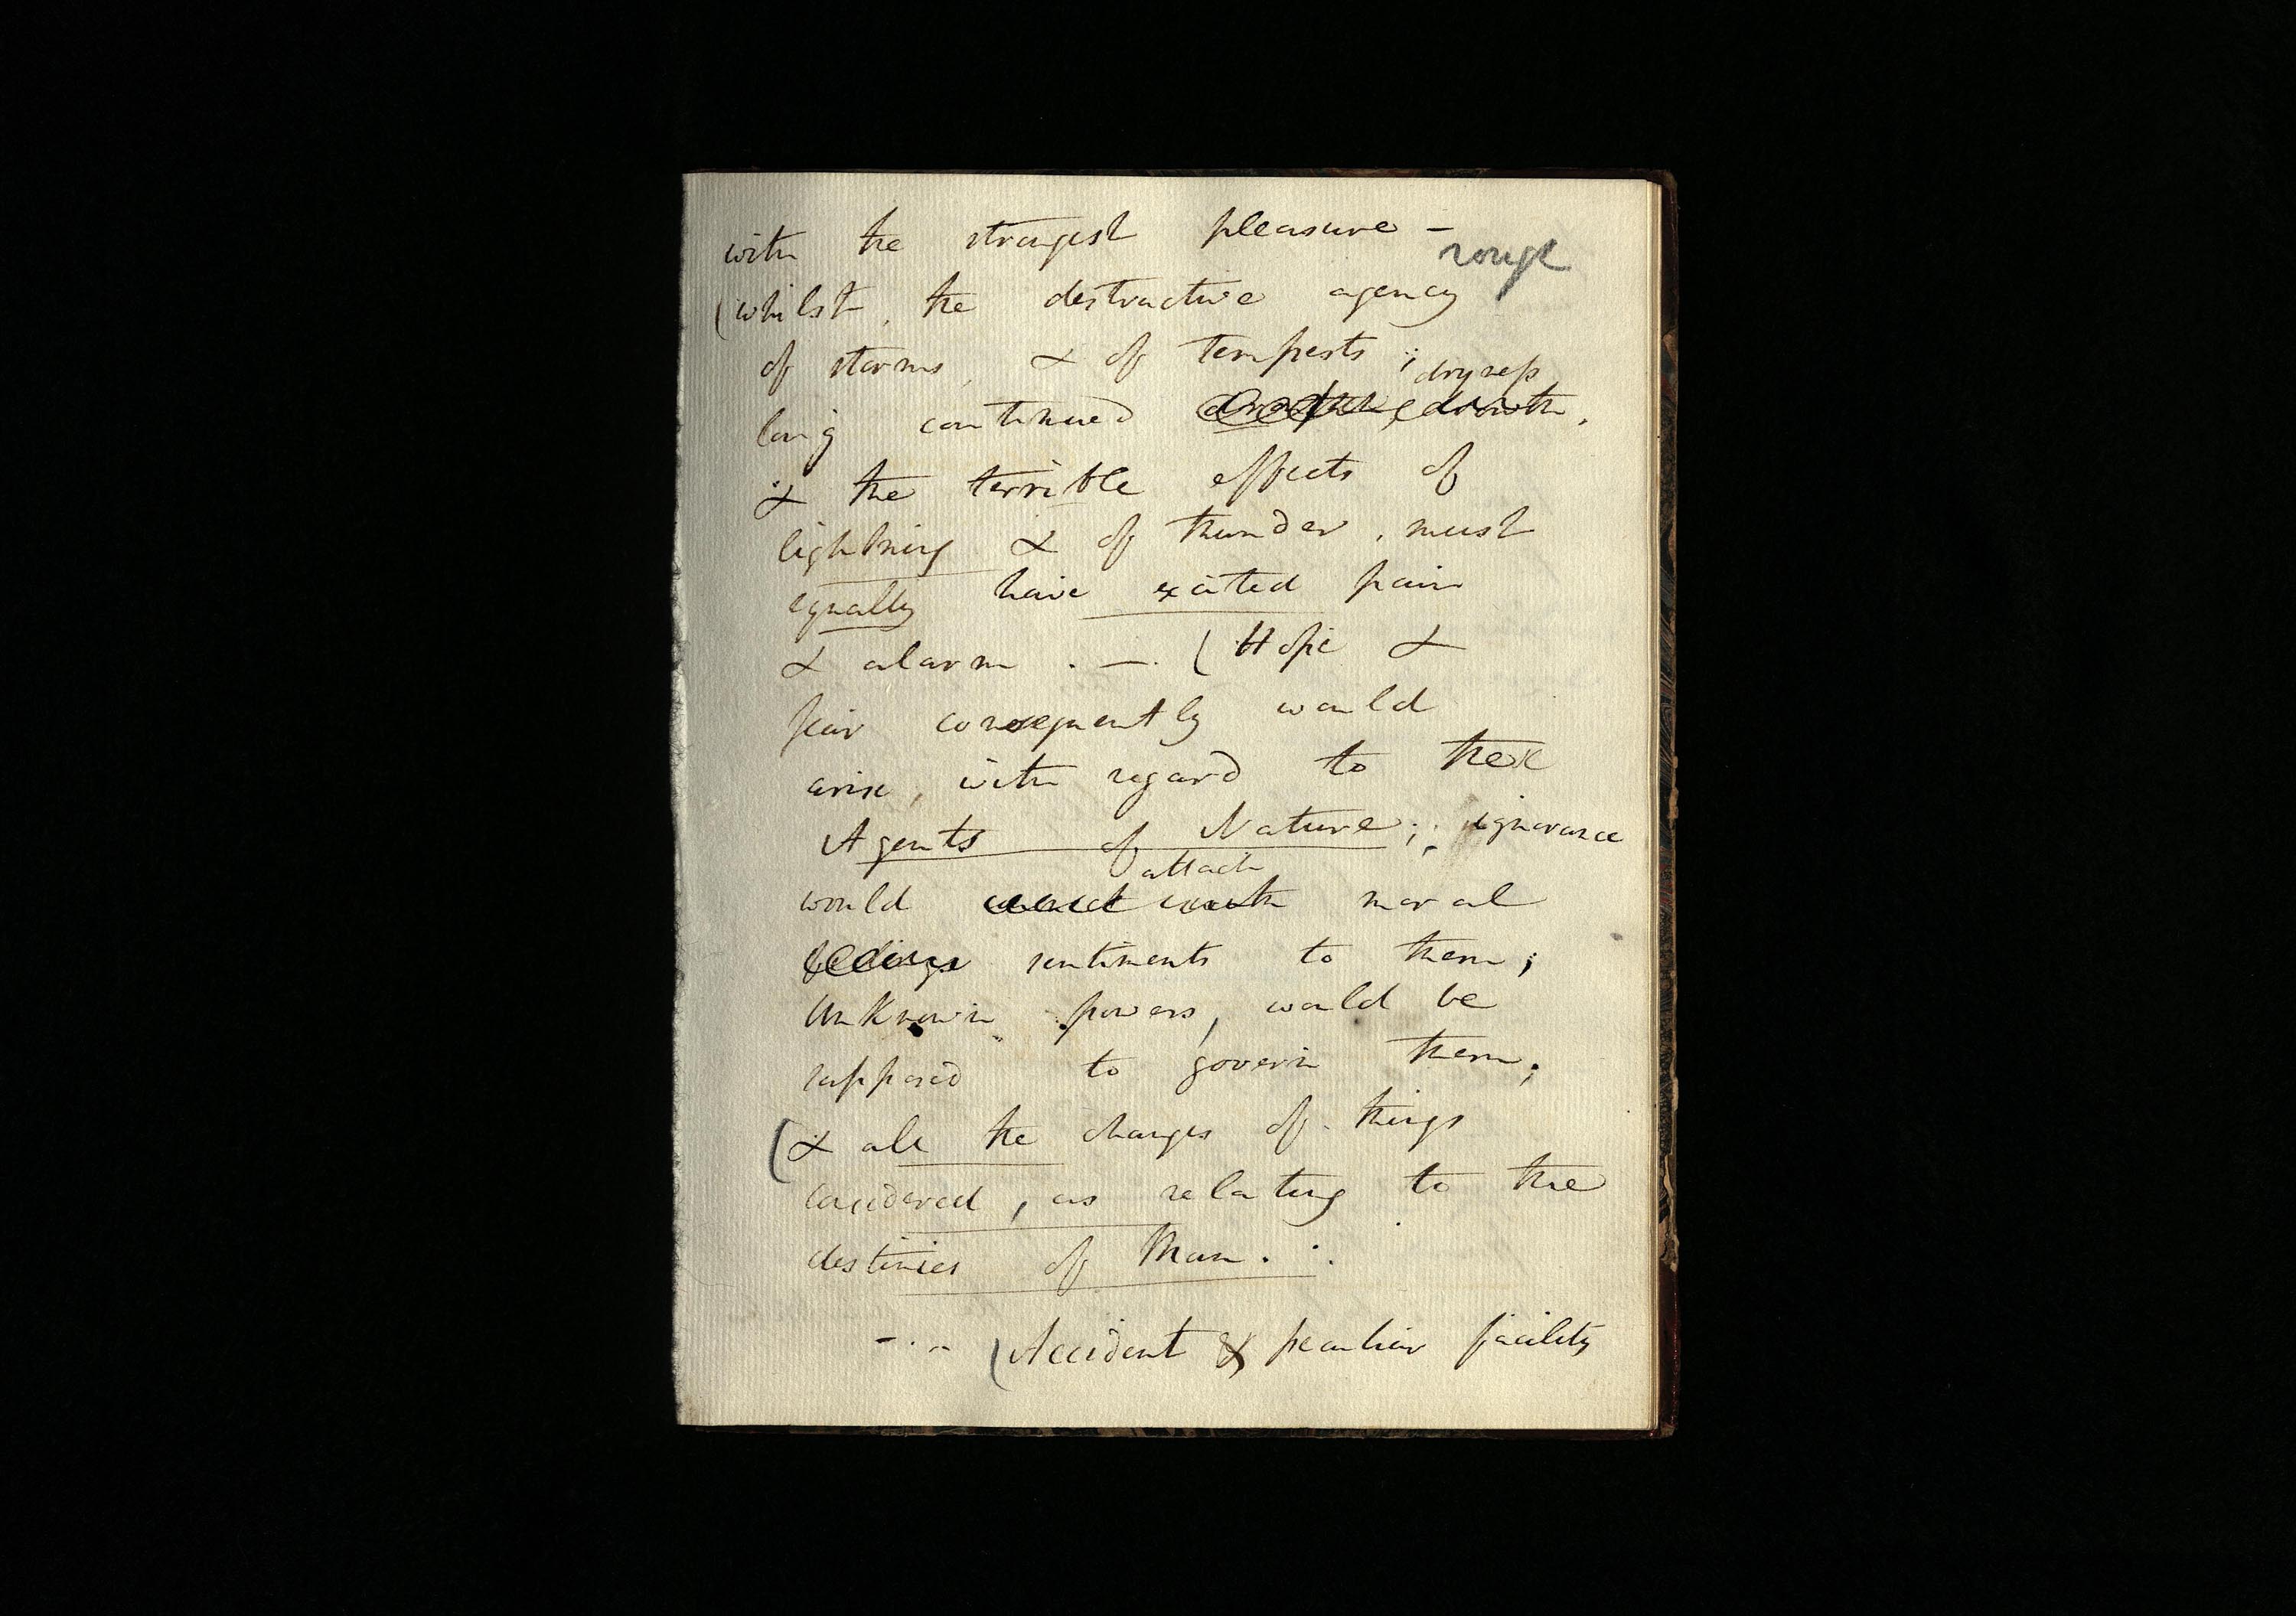 with the strongest pleasure –
rough
(whilst, the destructive agency
of storms, & of tempests ;
dryness
long continued drouth,
& the terrible effects of
lightning & of thunder, must
equally have excited pain
& alarm . — . (Hope &
fear consequently would
arise, with regard to these
Agents of Nature ; ignorance
attach
would moral
feelings sentiments to them ;
Unknown powers, would be
supposed to govern them ;
(& all the changes of things
considered, as relating to the
destinies of Man . : .
– . .. (Accident & peculiar facility